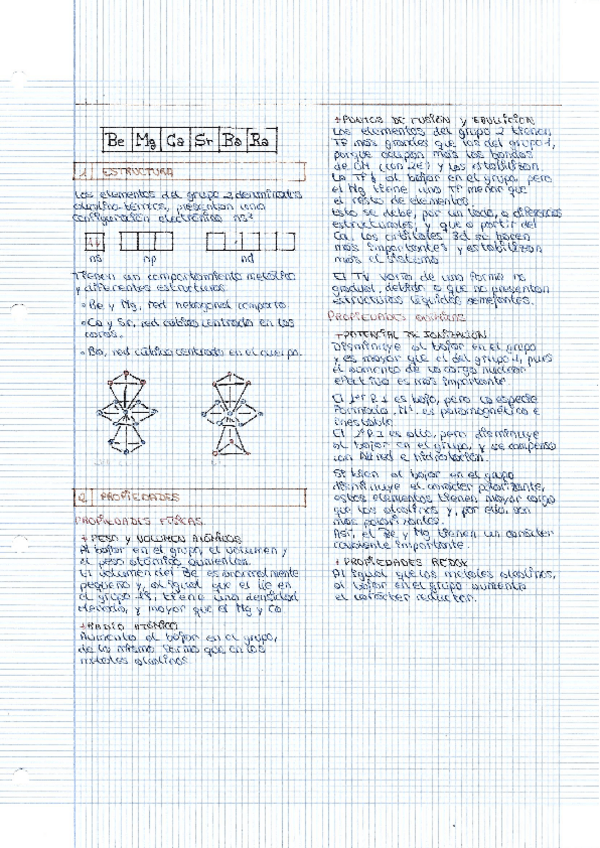 Be Mg Ca Sr Ba Ra
1 ESTRUCTURA
Los elementos del grupo 2, denominados
alcalino-térreos, presentan una
configuración electrónica ns²
ns np nd
Tienen un comportamiento metálico
y diferentes estructuras
• Be y Mg, red hexagonal compacta.
• Ca y Sr, red cúbica centrada en las
caras.
• Ba, red cúbica centrada en el cuerpo.
2 PROPIEDADES
PROPIEDADES FÍSICAS
+ PESO Y VOLUMEN ATÓMICOS
Al bajar en el grupo, el volumen y
el peso atómicos aumentan.
El volumen del Be es anormalmente
pequeño y, al igual que el Li en
el grupo 1, tiene una densidad
elevada, y mayor que el Mg y Ca
+ RADIO ATÓMICO
Aumenta al bajar en el grupo,
de la misma forma que en los
metales alcalinos.
+ PUNTOS DE FUSIÓN Y EBULLICIÓN
Los elementos del grupo 2 tienen
TF más grandes que los del grupo 1,
porque ocupan más las bandas
de OM (con 2e⁻) y las estabilizan.
La TF ↓ al bajar en el grupo, pero
el Mg tiene una TF menor que
el resto de elementos.
Esto se debe, por un lado, a diferencias
estructurales, y que a partir del
Ca, los orbitales 3d se hacen
más importantes y estabilizan
más el sistema
El TV varía de una forma no
gradual, debido a que no presentan
estructuras líquidas semejantes.
PROPIEDADES QUÍMICAS
+ POTENCIAL DE IONIZACIÓN
Disminuye al bajar en el grupo
y es mayor que el del grupo 1, pues
el aumento de la carga nuclear
efectiva es más importante.
El 1er P.I es bajo, pero la especie
formada, M⁺, es paramagnética e
inestable.
El 2º P.I es alto, pero disminuye
al bajar en el grupo, y se compensa
con ΔH red e hidratación.
Si bien al bajar en el grupo
disminuye el carácter polarizante,
estos elementos tienen mayor carga
que los alcalinos y, por ello, son
más polarizantes.
Así, el Be y Mg tienen un carácter
covalente importante.
+ PROPIEDADES REDOX
Al igual que los metales alcalinos,
al bajar en el grupo aumenta
el carácter reductor.